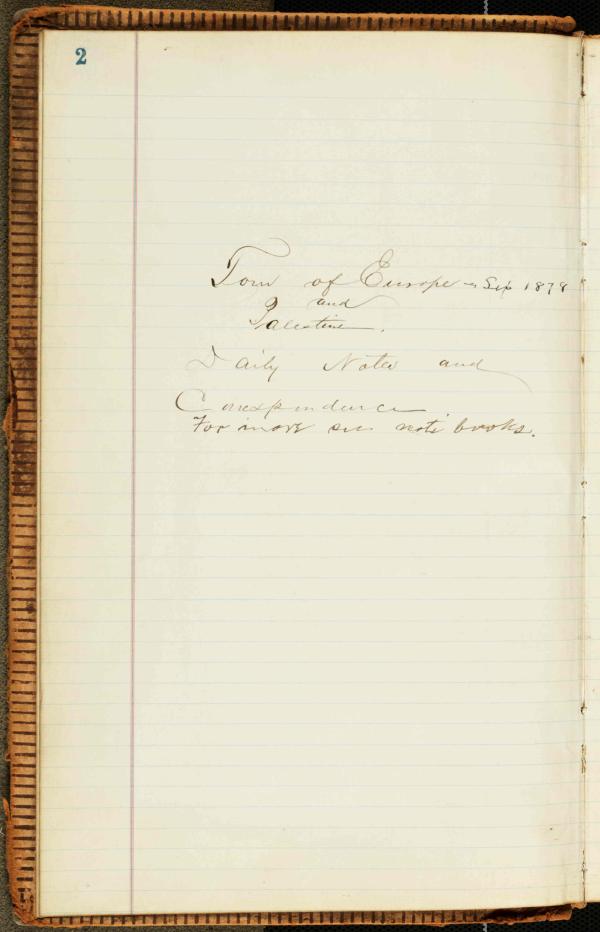 2
Tour of Europe in Sep 1878
and
Palestine.
Daily Notes and
Correspondence.
For more see note books.